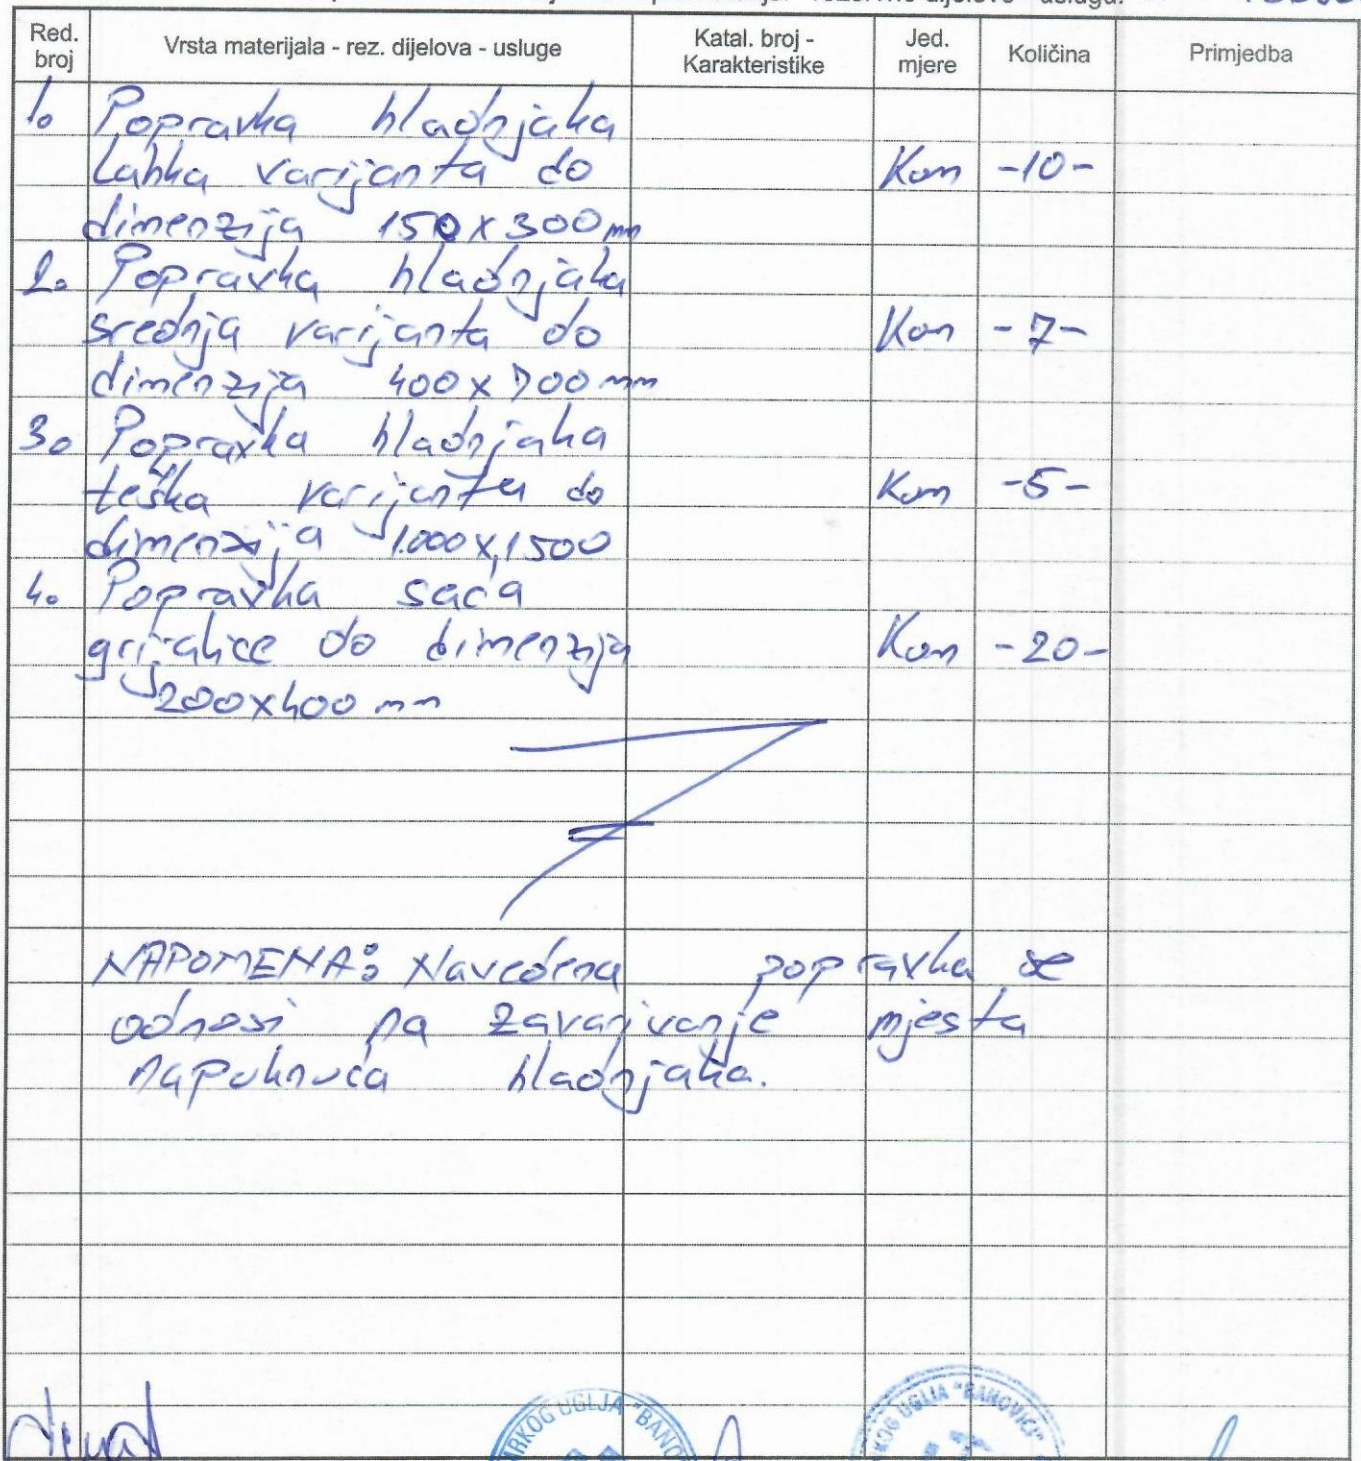 rezervne dijelove - uslugu:
Red. broj Vrsta materijala - rez. dijelova - usluge Katal. broj - Karakteristike Jed. mjere Količina Primjedba
1. Popravka hladnjaka
Lahka varijanta do Kom -10-
dimenzija 150x300mm
2. Popravka hladnjaka
srednja varijanta do Kom -7-
dimenzija 400x700mm
3. Popravka hladnjaka
teška varijanta do Kom -5-
dimenzija 1000x1500
4. Popravka saća
grijalice do dimenzija Kom -20-
200x400mm
NAPOMENA: Navedena popravka se
odnosi na zavarivanje mjesta
napuknuća hladnjaka.
RKOG UGLJA "BANO
KOG UGLJA "BANOVIĆI"